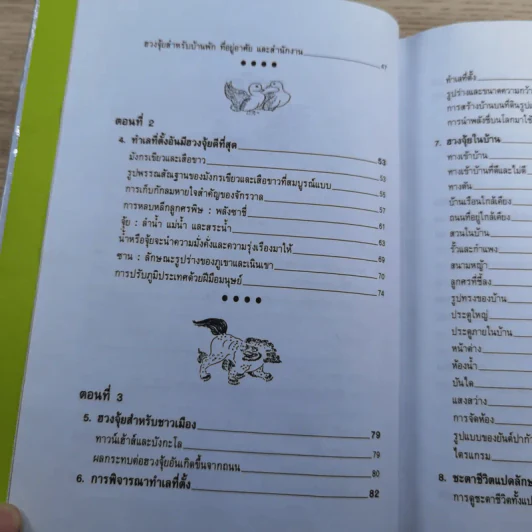 ฮวงจุ้ยสำหรับบ้านพัก ที่อยู่อาศัย และสำนักงาน
ตอนที่ 2
4. ทำเลที่ตั้งอันมีฮวงจุ้ยดีที่สุด 53
มังกรเขียวและเสือขาว 53
รูปพรรณสัณฐานของมังกรเขียวและเสือขาวที่สมบูรณ์แบบ 55
การเก็บกักลมหายใจสำคัญของจักรวาล 56
การหลบหลีกลูกศรพิษ : พลังซาชี่ 57
จุ้ย : ลำน้ำ แม่น้ำ และสระน้ำ 61
น้ำหรือจุ้ยจะนำความมั่งคั่งและความรุ่งเรืองมาให้ 63
ซาน : ลักษณะรูปร่างของภูเขาและเนินเขา 69
การปรับภูมิประเทศด้วยฝีมือมนุษย์ 70
74
ตอนที่ 3
5. ฮวงจุ้ยสำหรับชาวเมือง 79
ทาวน์เฮ้าส์และบังกะโล 79
ผลกระทบต่อฮวงจุ้ยอันเกิดขึ้นจากถนน 80
6. การพิจารณาทำเลที่ตั้ง 82
ทำเลที่ตั้ง
รูปร่างและขนาดความกว้า
การสร้างบ้านบนที่ดินรูปแ
การนำพลังชี่บนโลกมาใช้
7. ฮวงจุ้ยในบ้าน
ทางเข้าบ้าน
ทางเข้าบ้านที่ดีและไม่ดี
ทางตัน
บ้านเรือนใกล้เคียง
ถนนที่อยู่ใกล้เคียง
สวนในบ้าน
รั้วและกำแพง
สนามหญ้า
ลูกศรที่ชี้ลง
รูปทรงของบ้าน
ประตูใหญ่
ประตูภายในบ้าน
หน้าต่าง
ห้องน้ำ
บันได
แสงสว่าง
การจัดห้อง
รูปแบบของยันต์ปากั
ไตรแกรม
8. ชะตาชีวิตแปดลักษ
การดูชะตาชีวิตทั้งแป